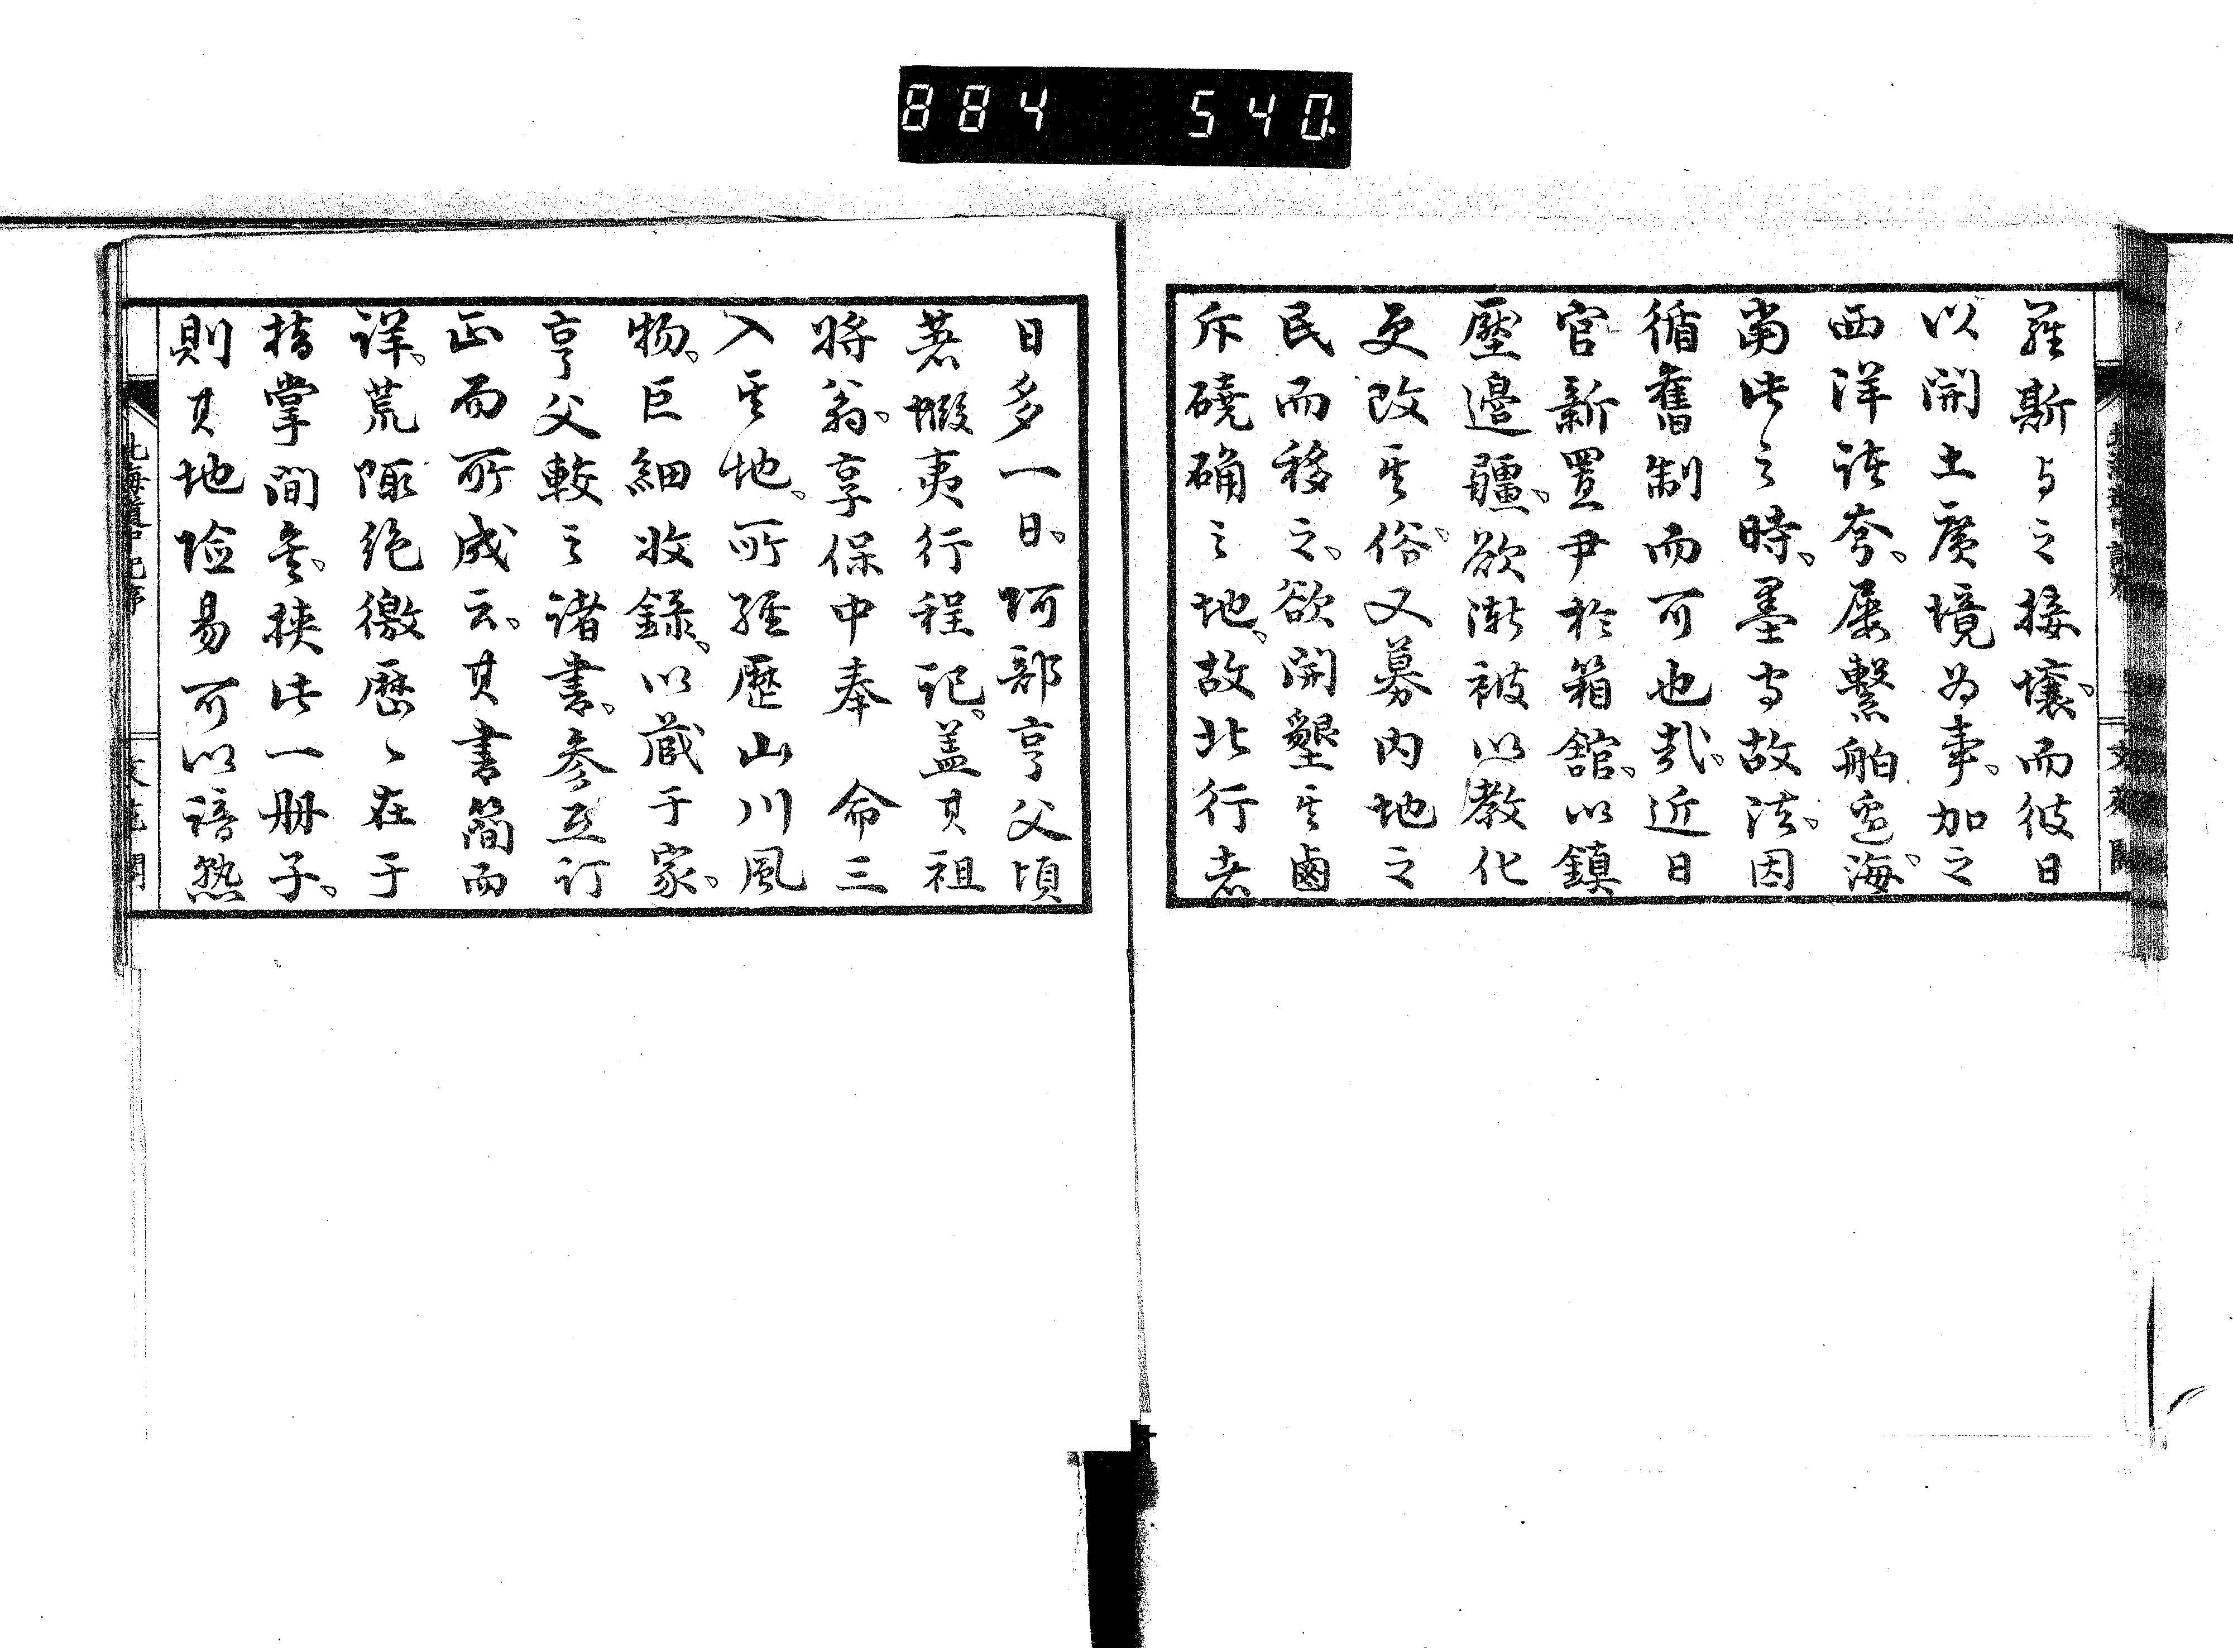 884 540.
羅斯与之接壤、而彼日
以開土廣境为事、加之
西洋諸夸、屡繫舶邊海、
當此之時、墨守故法、因
循舊制而可也哉、近日
官新置尹於箱舘、以鎮
壓邊疆、欲漸被以教化
更改其俗、又募内地之
民而移之、欲開墾其鹵
斥磽确之地、故北行者
日多一日、阿部亨父頃
著蝦夷行程記、盖其祖
將翁、享保中奉 命三
入其地、所經歷山川風
物、巨細收錄、以藏于家、
亨父較之諸書、參互訂
正而所成云、其書簡而
詳、荒陬绝徼歷〻在于
指掌间矣、挟此一册子、
則其地险易可以諳熟